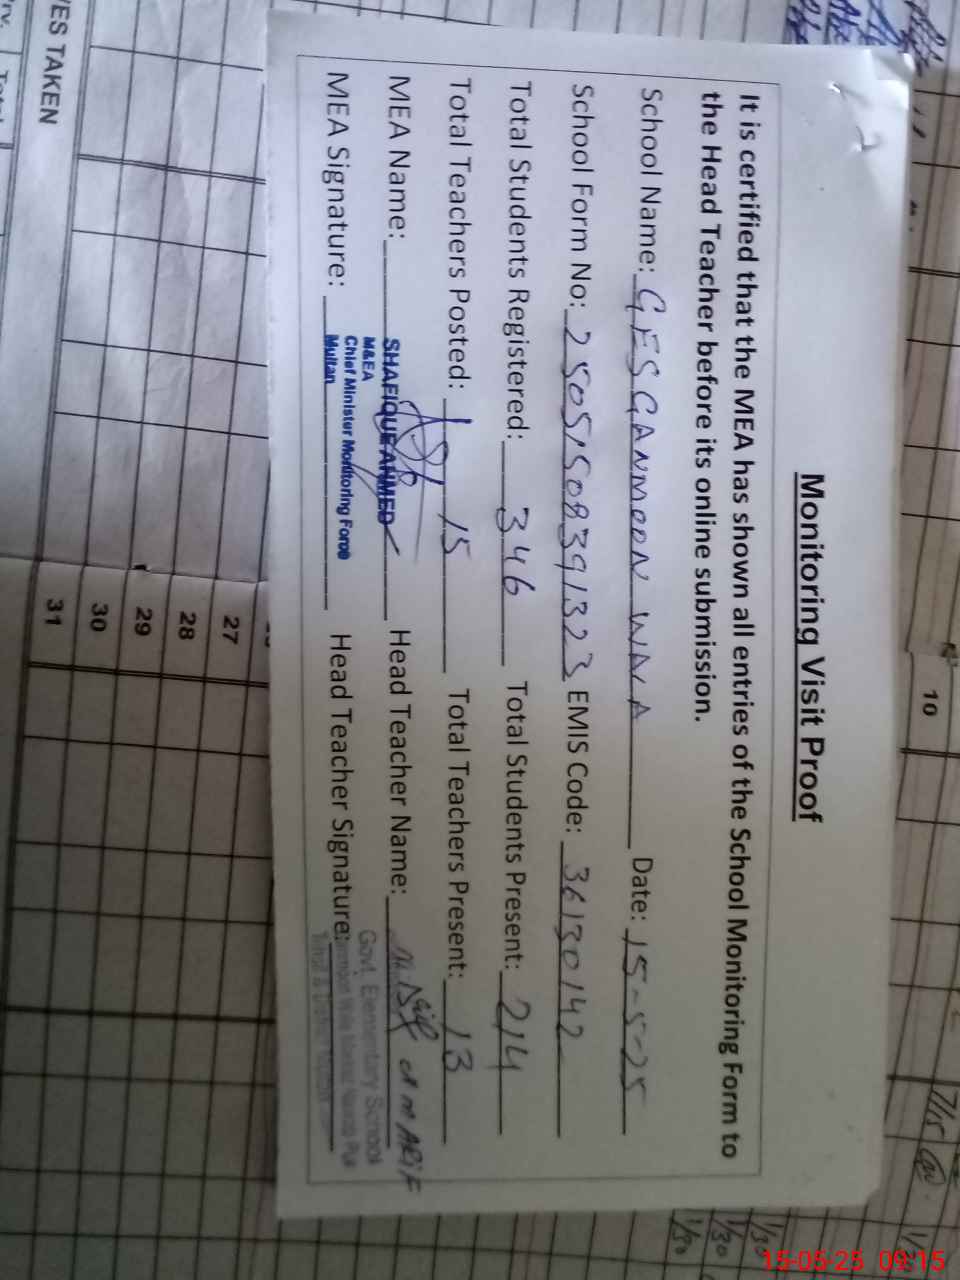 Monitoring Visit Proof
It is certified that the MEA has shown all entries of the School Monitoring Form to
the Head Teacher before its online submission.
School Name: GES GANMOON WALA Date: 15-5-25
School Form No: 25051508391323 EMIS Code: 36130142
Total Students Registered: 346 Total Students Present: 214
Total Teachers Posted: 15 Total Teachers Present: 13
MEA Name: SHAFIQUE AHMED Head Teacher Name: ARIF
M&EA
Chief Minister Monitoring Force
Multan
MEA Signature: Head Teacher Signature:
Govt. Elementary School
VES TAKEN
27
28
29
30
31
10
7/15
1/30
15-05-25 09:15